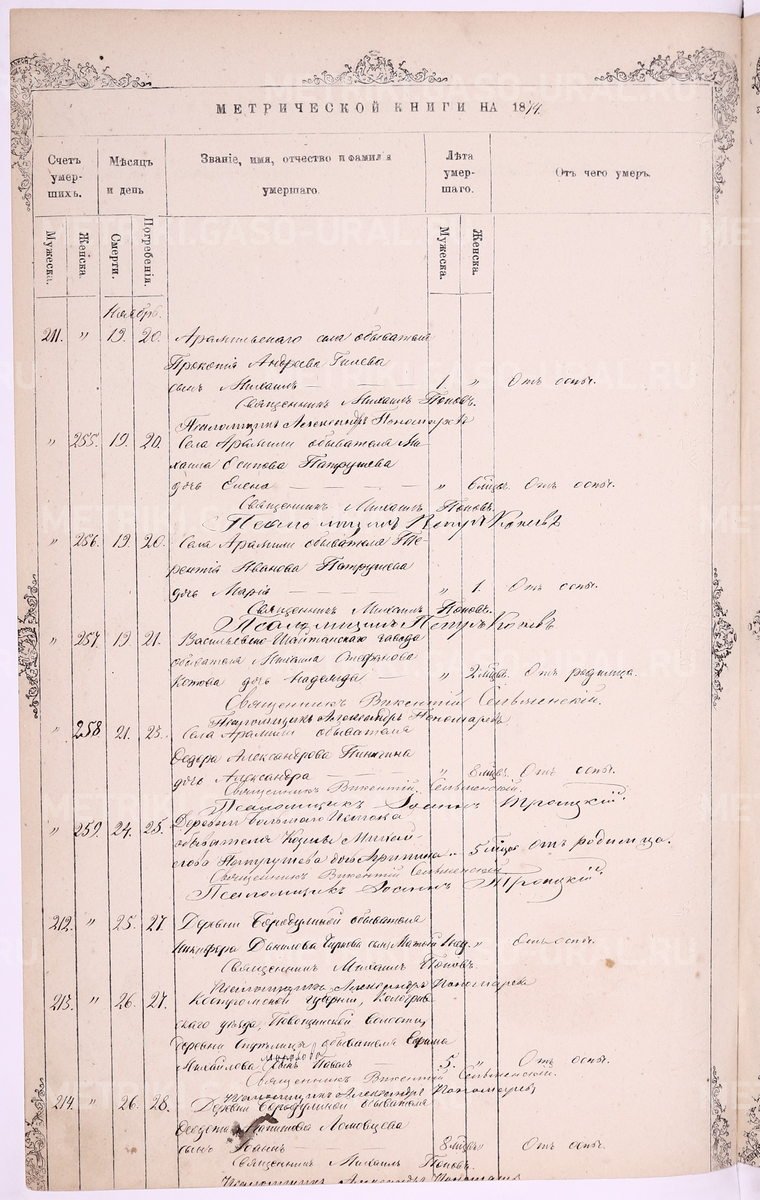 МЕТРИЧЕСКОЙ КНИГИ НА 1874.
Счетъ умер-шихъ.
Мѣсяцъ и день
Званіе, имя, отчество и фамилія умершаго.
Лѣта умер-шаго.
Отъ чего умеръ.
Мужеска.
Женска.
Смерти.
Погребенія.
Мужеска.
Женска.
Ноябрь.
211. " 19. 20. Арамильскаго села обывателя
Прокопія Андреева Гилева
сынъ Михаилъ — 1. " Отъ оспы.
Священникъ Михаилъ Поповъ.
Псаломщикъ Александръ Пономаревъ
" 255. 19. 20. Села Арамили обывателя Ми-
хаила Осипова Патрушева
дочь Елена — " 6 мѣсц. Отъ оспы.
Священникъ Михаилъ Поповъ.
Псаломщикъ Петръ
" 256. 19. 20. Села Арамили обывателя Те-
рентія Иванова Патрушева
дочь Марія — " 1. Отъ оспы.
Священникъ Михаилъ Поповъ.
Псаломщикъ Петръ
" 257. 19 21. Васильевско-Шайтанскаго завода
обывателя Михаила Стефанова
Котова дочь Надежда — " 2 мѣсц. Отъ родимца.
Священникъ Викентій
Псаломщикъ Александръ Пономаревъ
" 258 21. 23. Села Арамили обывателя
Федора Александрова
дочь Александра — " 8 мѣсц. Отъ оспы.
Священникъ Викентій
Псаломщикъ Іоаннъ Троицкій.
" 259. 24. 25. Деревни Большаго Истока
обывателя Козмы Михай-
лова Патрушева дочь " 5 мѣсц. Отъ родимца.
Священникъ Викентій
Псаломщикъ Іоаннъ Троицкій
212. " 25. 27. Деревни Бородулиной обывателя
Никифора Данилова сынъ " Отъ оспы.
Священникъ Михаилъ Поповъ.
Псаломщикъ Александръ Пономаревъ
213. " 26. 27. Костромской губерніи, Кологрив-
скаго уѣзда, волости,
деревни обывателя Ефима
Михайлова сынъ Павелъ 5. " Отъ оспы.
Священникъ Викентій
Псаломщикъ Александръ Пономаревъ
214. " 26. 28. Деревни Бородулиной обывателя
Ломовцева
сынъ Іоаннъ 8 мѣсц. Отъ оспы.
Священникъ Михаилъ Поповъ.
Псаломщикъ Александръ Пономаревъ